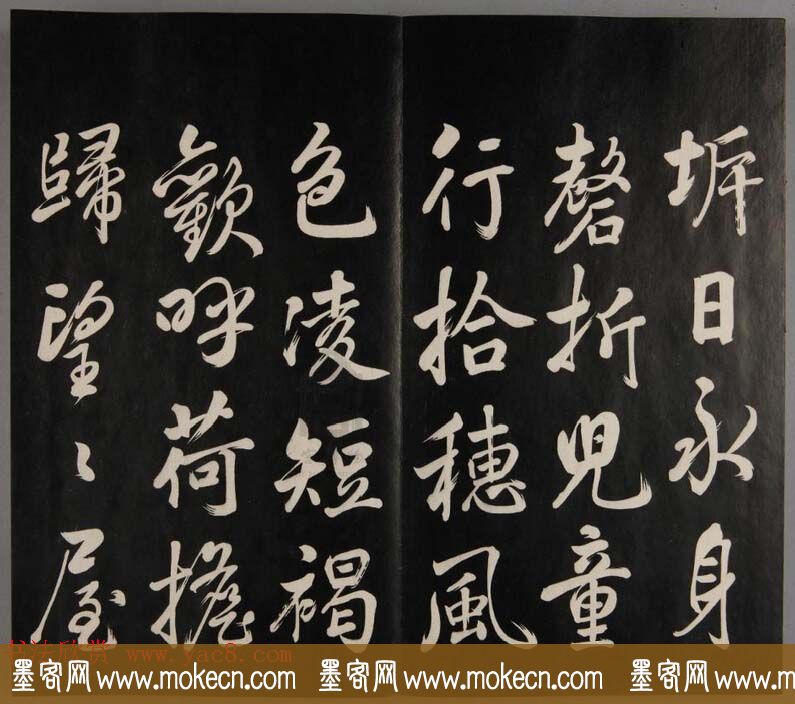 坼日永身
磬折兒童
行拾穗風
色凌短褐
歡呼荷擔
歸望〻屋
书法欣赏 www.yac8.com
墨客网 www.mokecn.com 墨客网 www.mokecn.com 墨客网 www.mokecn.com